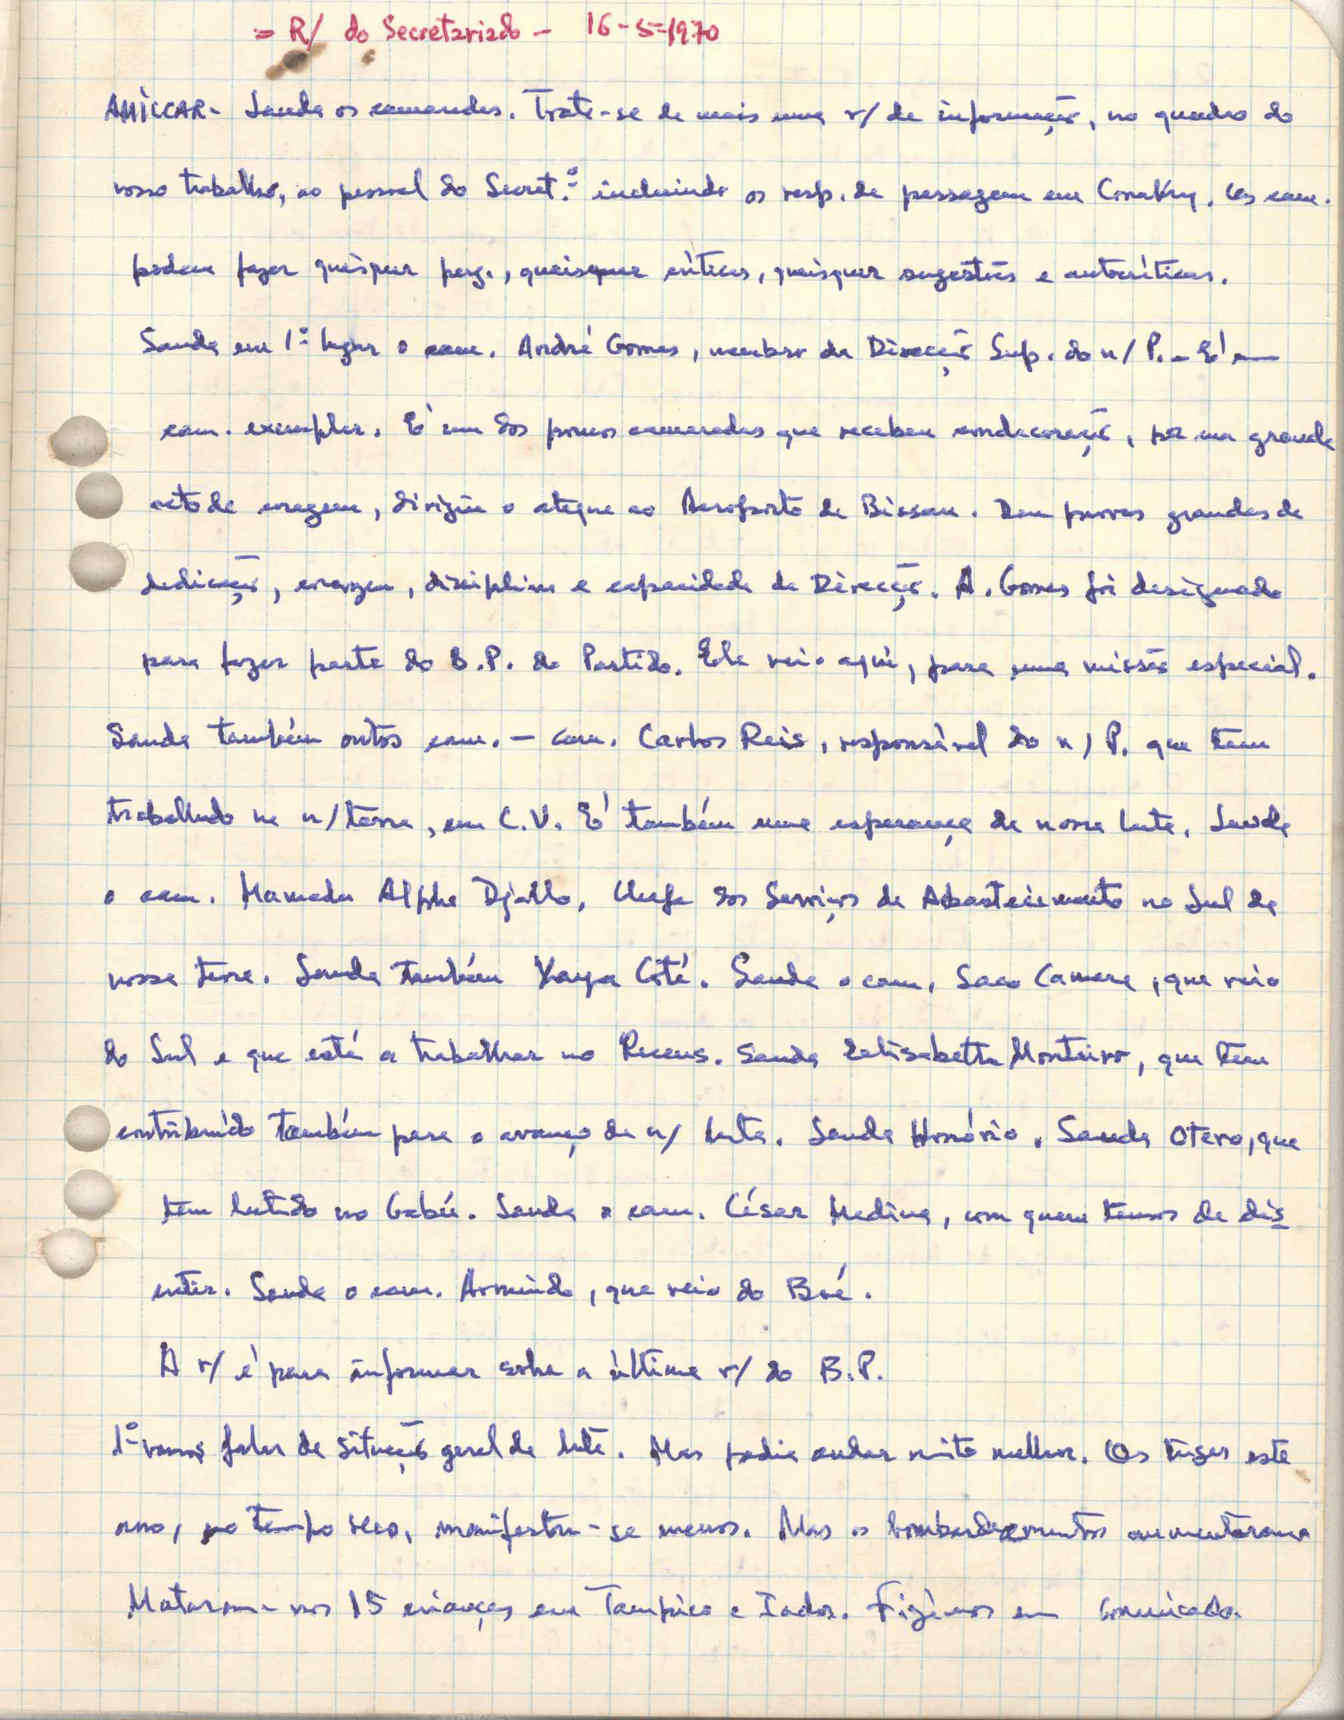 = R/ do Secretariado - 16-5-1970
AMÍLCAR - Saúda os camaradas. Trata-se de mais uma r/ de informação, no quadro do
nosso trabalho, ao pessoal do Secret.º incluindo os resp. de passagem em Conakry. Os cam.
podem fazer quaisquer perg., quaisquer críticas, quaisquer sugestões e autocríticas.
Saúda em 1º lugar o cam. André Gomes, membro da Direcção Sup. do n/ P. - É um
cam. exemplar. É um dos poucos camaradas que recebeu condecoração, por um grande
acto de coragem, dirigiu o ataque ao Aeroporto de Bissau. Deu provas grandes de
dedicação, coragem, disciplina e capacidade de Direcção. A. Gomes foi designado
para fazer parte do B.P. do Partido. Ele veio aqui, para uma missão especial.
Saúda também outros cam. - cam. Carlos Reis, responsável do n/ P. que tem
trabalhado na n/ terra, em C.V. É também uma esperança da nossa luta. Saúda
o cam. Mamadu Alpha Djallo, Chefe dos Serviços de Abastecimento no Sul da
nossa terra. Saúda também Yaya Coté. Saúda o cam. Saco Camara, que veio
do Sul e que está a trabalhar no Recens. Saúda Elisabetta Monteiro, que tem
contribuído também para o avanço da n/ luta. Saúda Honório. Saúda Otero, que
tem lutado no Gabú. Saúda o cam. César Medina, com quem temos de dis
cutir. Saúda o cam. Armindo, que veio do Boé.
A r/ é para informar sobre a última r/ do B.P.
1º vamos falar da situação geral da luta. Mas podia andar muito melhor. Os tugas este
ano, no tempo seco, manifestou-se menos. Mas os bombardeamentos aumentaram.
Mataram-nos 15 crianças em Tambico e Iador. Fizémos um comunicado.